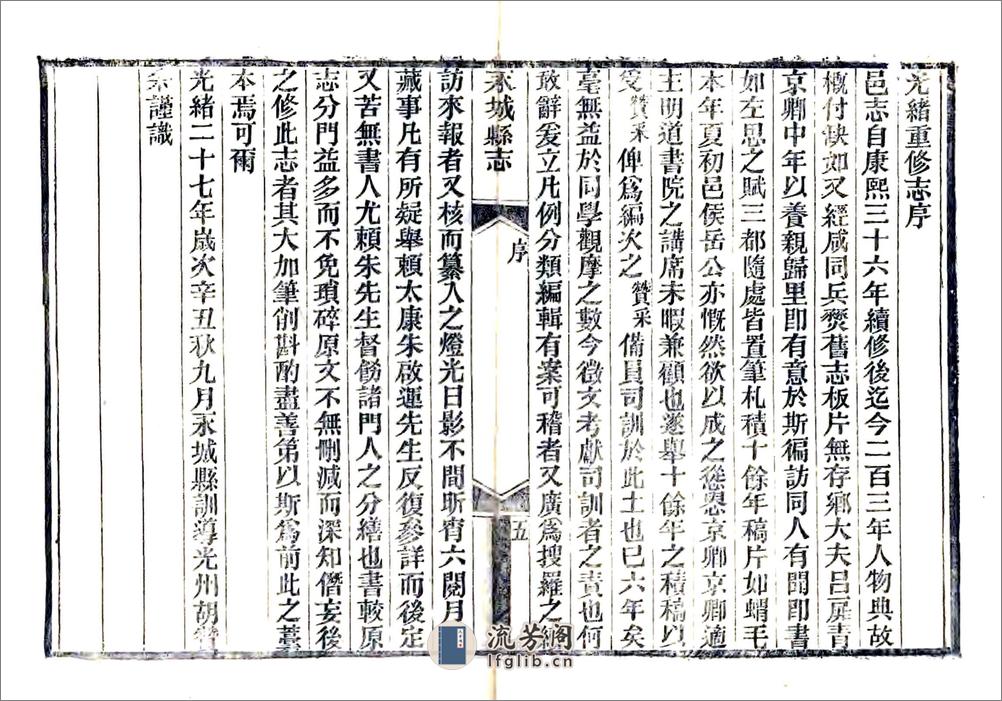 光緒重修志序
邑志自康熙三十六年續修後迄今二百三年人物典故
概付缺如又經咸同兵燹舊志板片無存鄉大夫呂
京卿中年以養親歸里即有意於斯徧訪同人有聞即書
如左思之賦三都隨處皆置筆札積十餘年稿片如蝟毛
本年夏初邑侯岳公亦慨然欲以成之慫恿京卿京卿適
主明道書院之講席未暇兼顧也遂舉十餘年之積稿以
受贊采俾爲編次之贊采備員司訓於此土也已六年矣
毫無益於同學觀摩之數今徵文考獻司訓者之責也何
敢辭爰立凡例分類編輯有案可稽者又廣爲搜羅之
永城縣志
序
五
訪來報者又核而纂入之燈光日影不間昕宵六閱月
蕆事凡有所疑舉賴太康朱啟運先生反復參詳而後定
又苦無書人尤賴朱先生督飭諸門人之分繕也書較原
志分門益多而不免瑣碎原文不無刪減而深知僭妄後
之修此志者其大加筆削斟酌盡善第以斯爲前此之藁
本焉可爾
光緒二十七年歲次辛丑秋九月永城縣訓導光州胡贊
采謹識
流芳閣
lfglib.cn